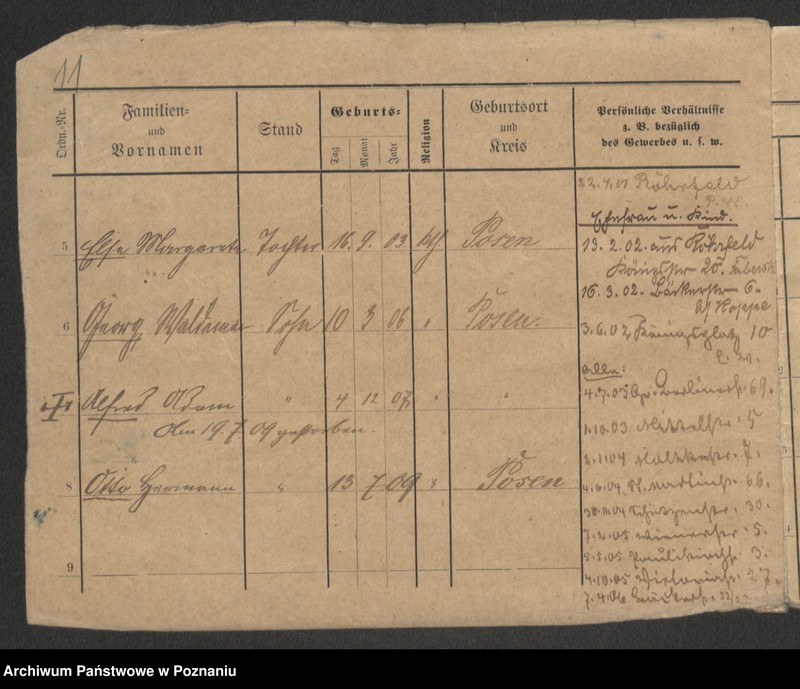 11
Ordn.-Nr.
Familien-
und
Vornamen
Stand
Geburts-
Tag
Monat
Jahr
Religion
Geburtsort
und
Kreis
Persönliche Verhältnisse
z. B. bezüglich
des Gewerbes u. s. w.
5 Else Margarete Tochter 16. 9. 03 Posen
6 Georg Waldemar Sohn 10 3 06 " Posen.
Alfred Adam " 4 12 07 " "
Am 19. 7 09 gestorben.
8 Otto Hermann " 13 7 09 " Posen
9
22. 9. 01 Röhrfeld
Ehefrau u. Kind.
13. 2. 02. aus Röhrfeld
Königstr 25.
16. 3. 02. Bäckerstr 6.
bei Hoppe
3. 6. 02 Königsplatz 10
alle:
4. 7. 03 Gr. Berlinerstr. 69.
1. 10. 03 Mittelstr. 5
2. 1. 04 Moltkestr. 7.
4. 6. 04 St. Martinstr. 66.
30. 11. 04 Schützenstr. 30.
7. 2. 05 Wienerstr. 5.
5. 5. 05 Paulikirchstr. 3.
4. 10. 05 Victoriastr. 27.
7. 4. 06
Archiwum Państwowe w Poznaniu